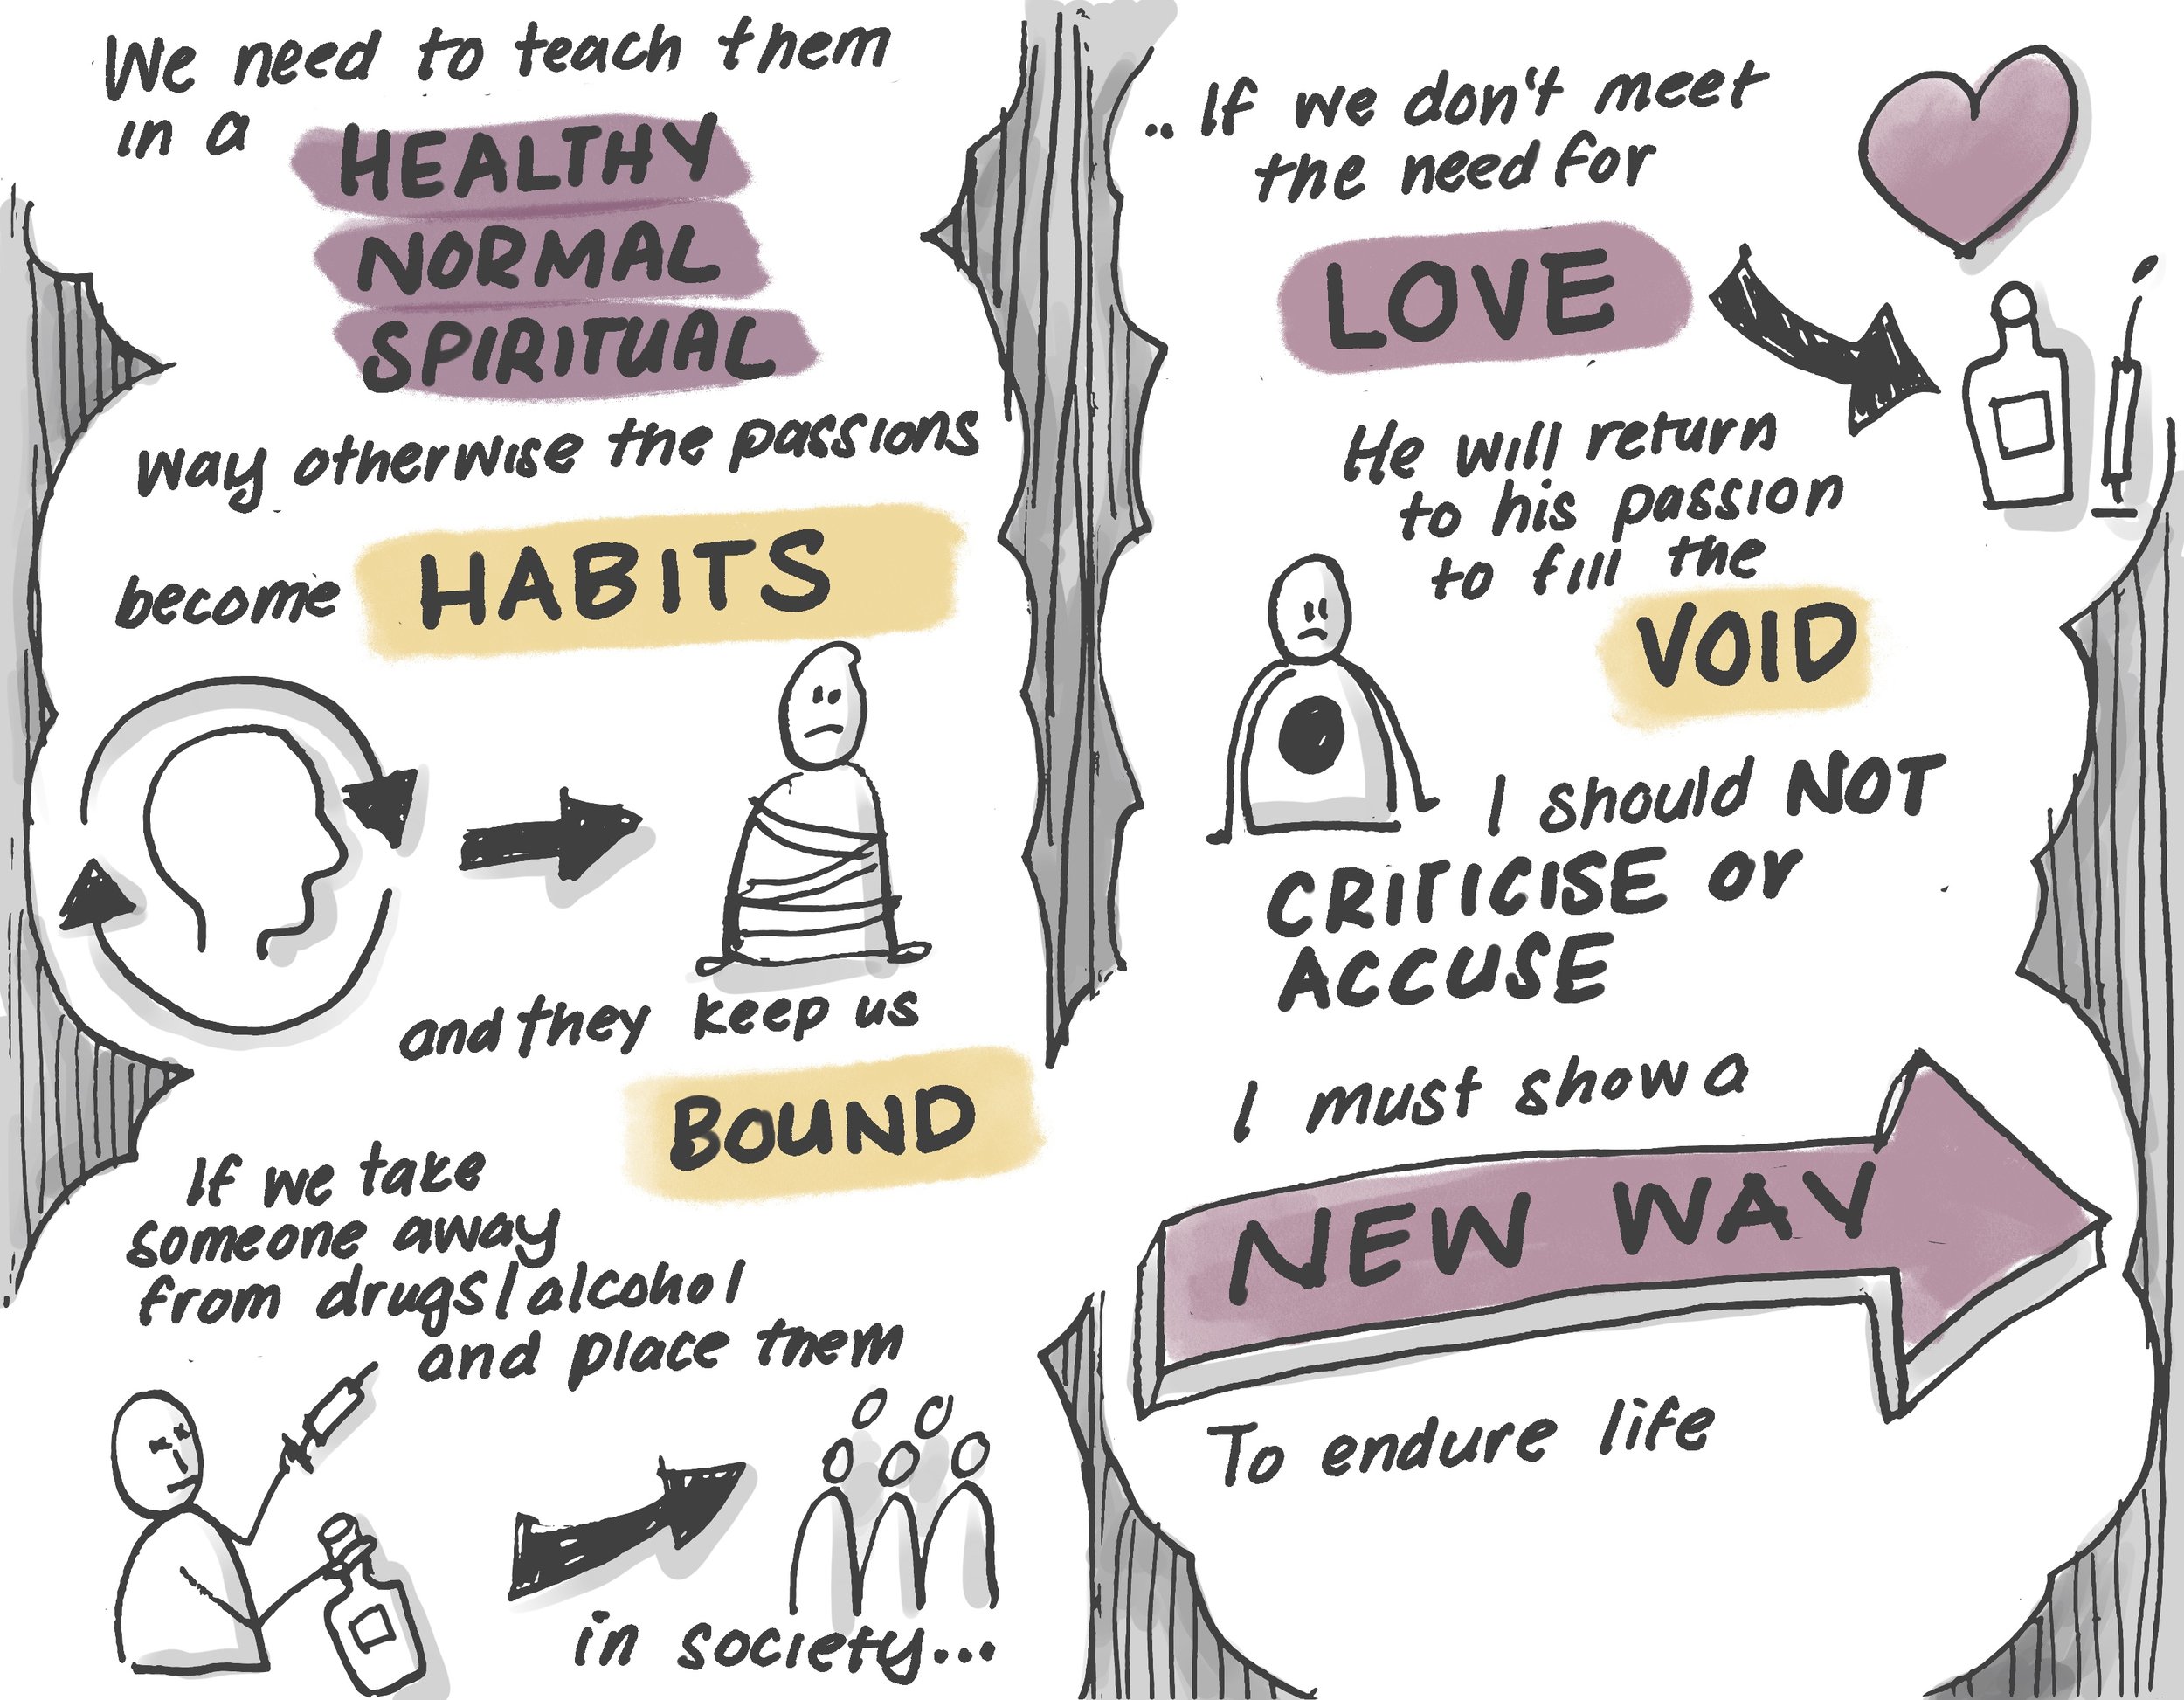 We need to teach them
in a
HEALTHY
NORMAL
SPIRITUAL
way otherwise the passions
become HABITS
and they keep us
BOUND
If we take
someone away
from drugs/alcohol
and place them
in society...
.. If we don't meet
the need for
LOVE
He will return
to his passion
to fill the
VOID
I should NOT
CRITICISE or
ACCUSE
I must show a
NEW WAY
To endure life